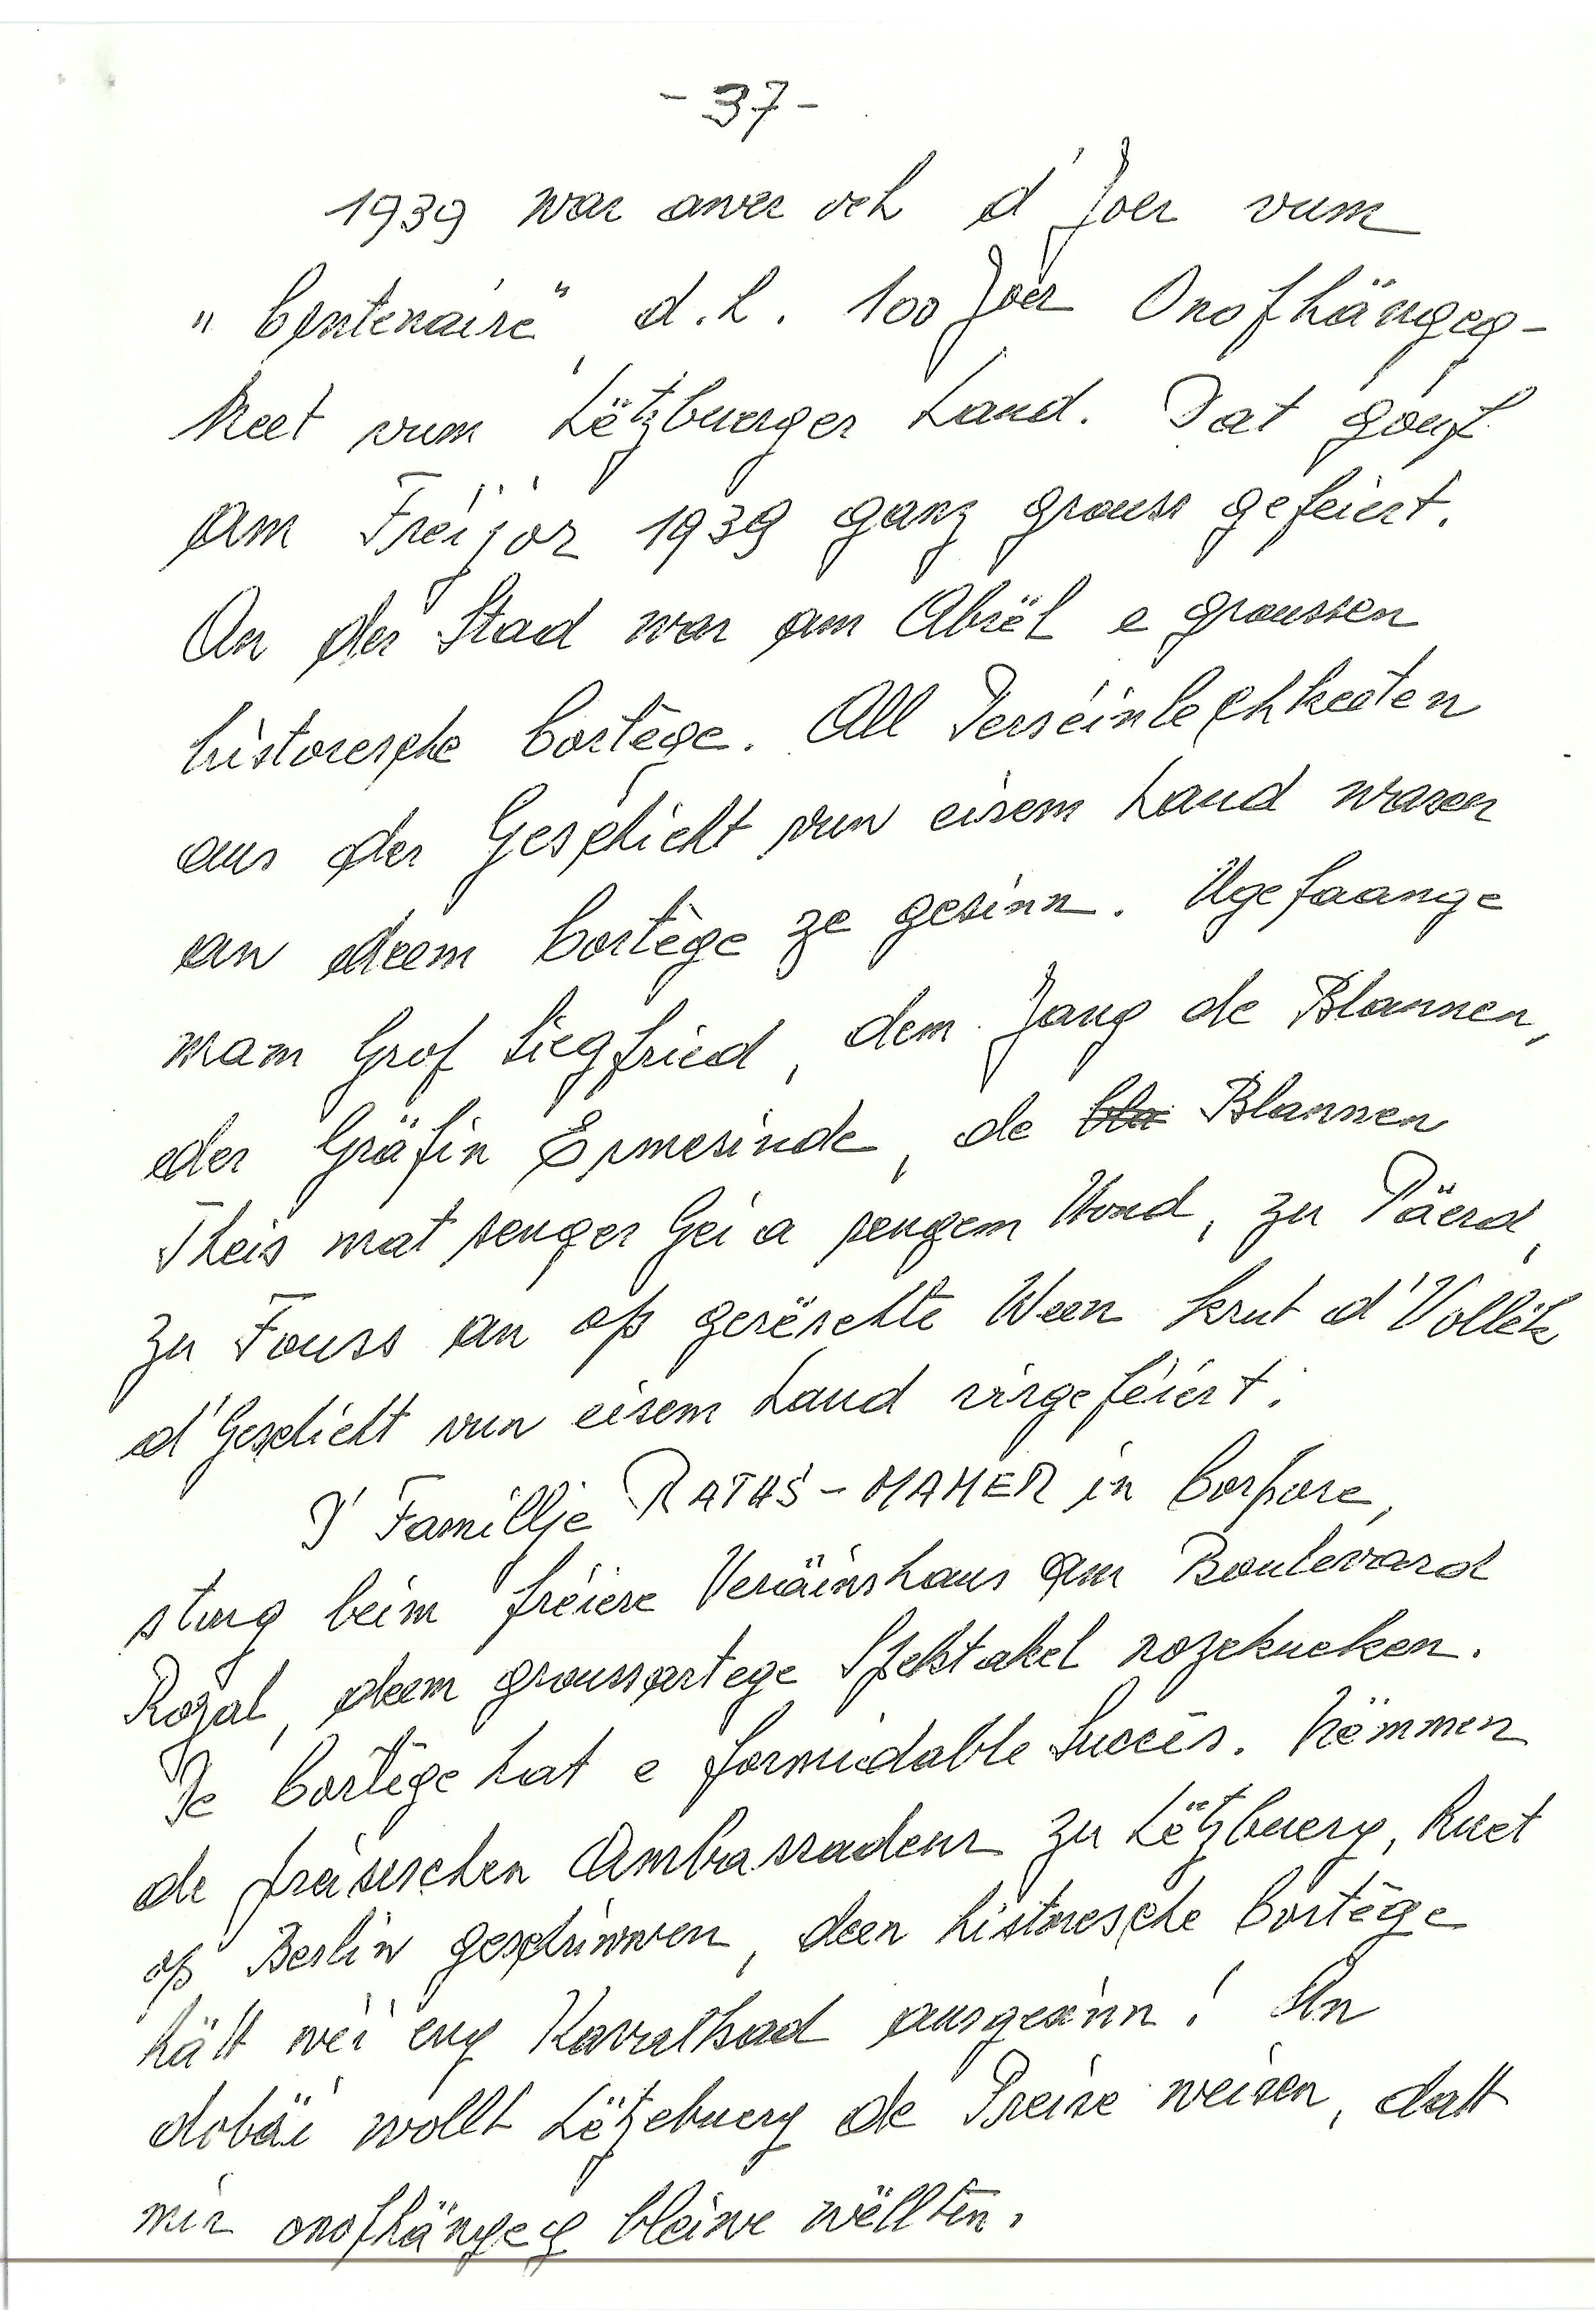 - 37 -
1939 war awer och d'Joer vum
"Centenaire" d.h. 100 Joer Onofhängeg-
keet vum Lëtzbuerger Land. Dat gouf
am Fréijor 1939 ganz grouss gefeiert.
An der Stad war am Abrël e groussen
historesche Cortège. All Perséinlechkeeten
aus der Geschicht vun eisem Land waren
an deem Cortège ze gesinn. Ugefaange
mam Grof Siegfried, dem Jang de Blannen,
der Gräfin Ermesinde, de bla Blannen
Theis mat senger Gei a sengem Hond, zu Päerd,
zu Fouss an op gerëschte Ween krut d'Vollék
d'Geschicht vun eisem Land virgeféiert.
D'Famillje RATHS-MAMER in Corpore,
stung beim fréiere Veräinshaus am Boulevard
Royal, deem groussartege Spektakel nozekucken.
De Cortège hat e formidable Succès. Nëmmen
de preiseschen Ambassadeur zu Lëtzbuerg, huet
op Berlin geschriwwen, deen historesche Cortège
hätt wéi eng Kavalkad ausgesinn! An
dobäi wollt Lëtzebuerg de Preise weisen, datt
mir onofhängeg bleiwe wëllten.